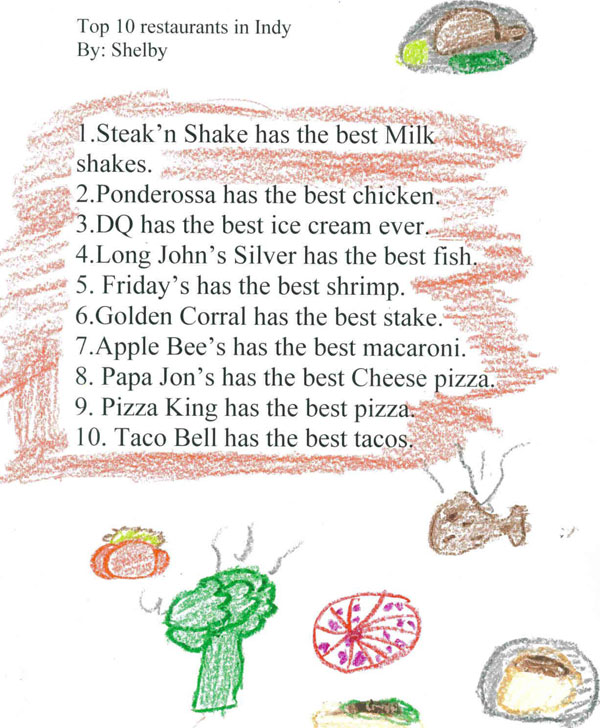 Top 10 restaurants in Indy
By: Shelby
1.Steak’n Shake has the best Milk
shakes.
2.Ponderossa has the best chicken.
3.DQ has the best ice cream ever.
4.Long John’s Silver has the best fish.
5. Friday’s has the best shrimp.
6.Golden Corral has the best stake.
7.Apple Bee’s has the best macaroni.
8. Papa Jon’s has the best Cheese pizza.
9. Pizza King has the best pizza.
10. Taco Bell has the best tacos.